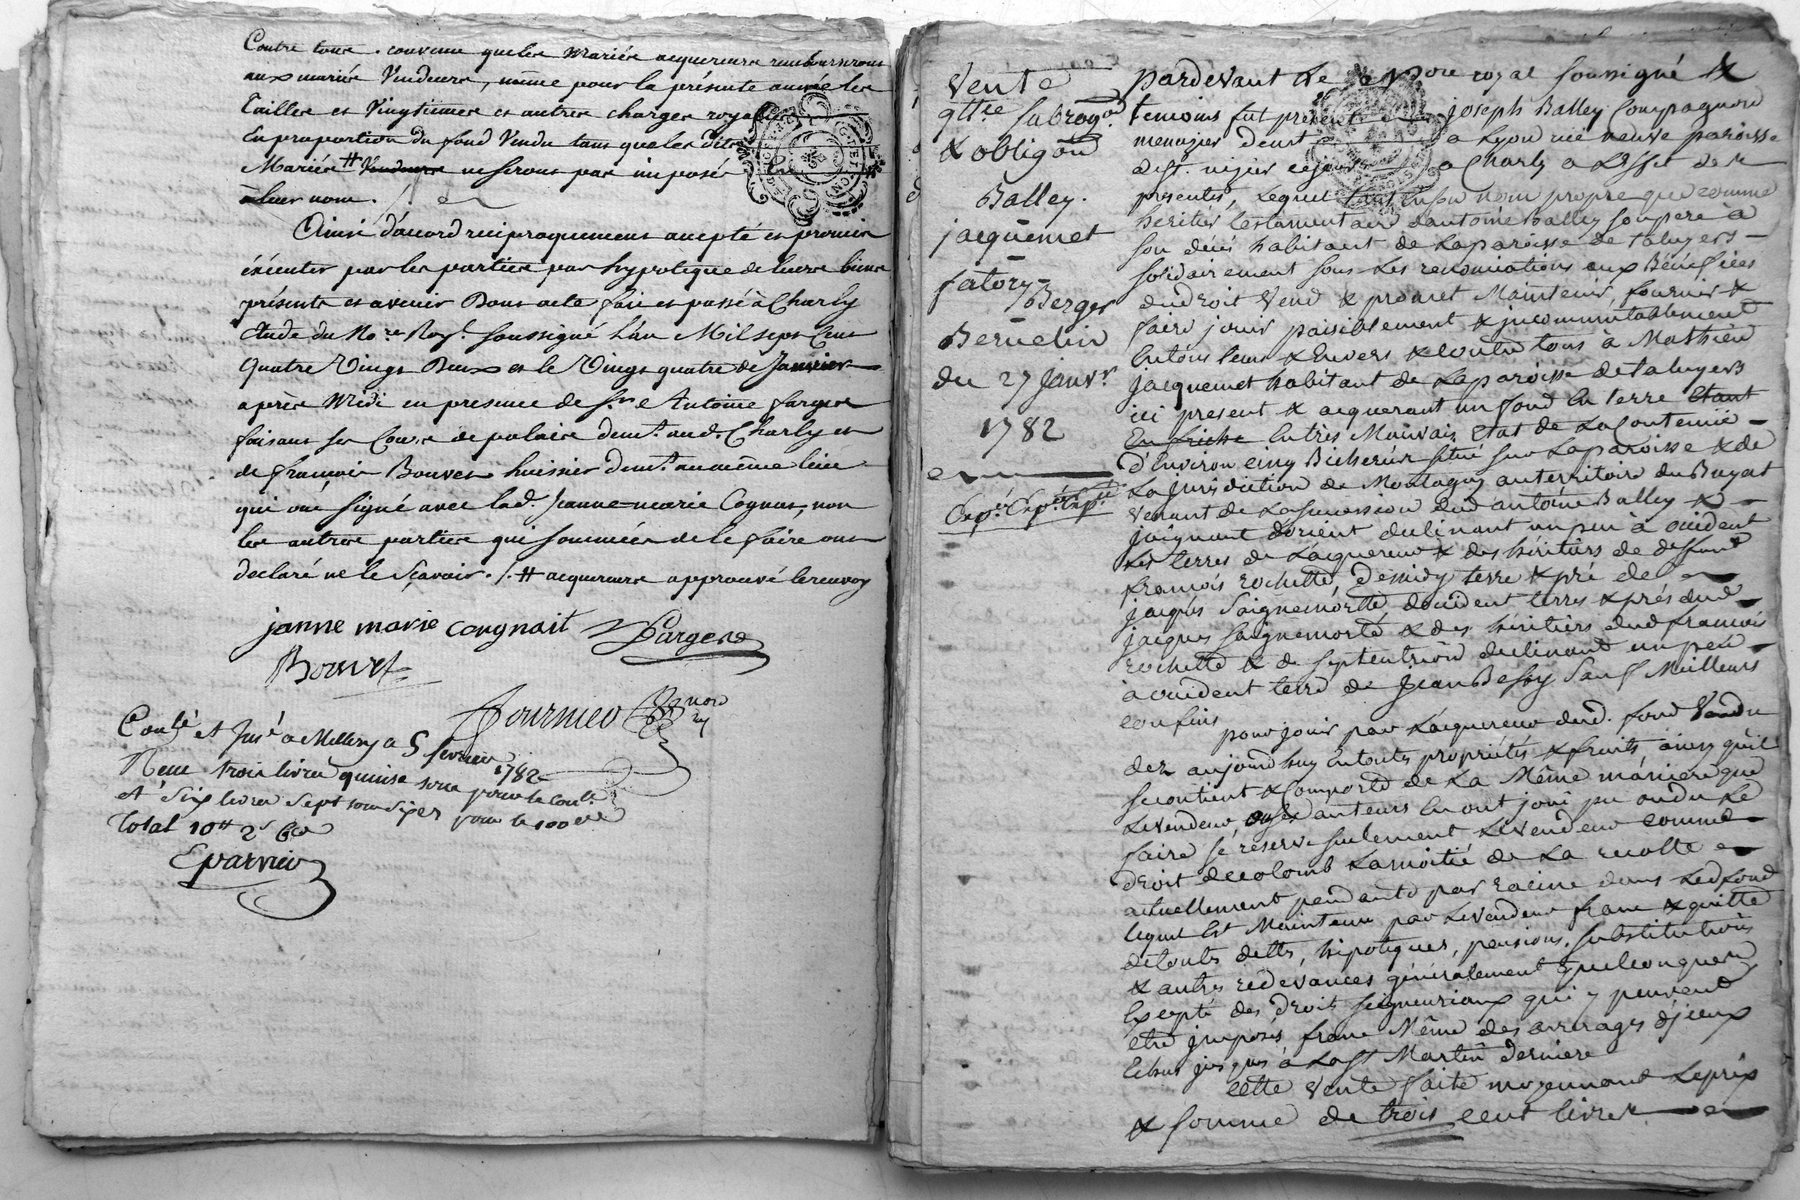 Contre tous. convenu que les Mariés acquereurs rembourseront
aux mariés Vendeurs, même pour la présente année les
Tailles et Vingtiemes et autres charges royalles
En proportion du fond Vendu tant que les dits
Mariés # Vendeurs ne seront pas imposés
à leur nom. /.
Ainsi d'accord reciproquement accepté et promis
éxécuter par les parties par hypotèque de leurs biens
présents et avenir Dont acte fait et passé à Charly
Etude du No.re Roy.l soussigné L'an Mil sept Cent
Quatre Vingt Deux et le Vingt quatre de Janvier
après Midi en presence de S.r Antoine farges
faisant ses Cours de palais dem.t aud. Charly et
de françois Bouvet huissier dem.t au même lieu
qui ont signé avec lad. Jeanne-marie Cognat, non
les autres parties qui sommées de le faire ont
declaré ne le Sçavoir. /. # acquereurs approuvé le renvoy
janne marie congnait Farges
Bouvet
Fournier
Con.lé et Ins.é a Millery a 5 fevrier 1782
Reçu trois livres quinze sous pour le con.le
et six livres sept sous six d. pour le 100.eme
Total 10tt 2s 6d
Eparvier
Vente
qtt.ce subrog.on
& obligaôn
Balley.
jacquemet
fatory
Berger
Bernelin
du 27 janv.r
1782
Exp.é Exp.é Exp.é
Pardevant Le No.re royal soussigné &
temoins fut present joseph Balley Compagnon
menuisier demt a Lyon rüe neuve paroisse
de St. nizier a Charly a L'effet des
presentes, Lequel tant en son nom propre que comme
heritier testamentaire d'antoine Balley son pere à
son decés habitant de Laparoisse de taluyers
solidairement sous les renonciations aux Bénéfices
du droit vend & promet Maintenir, fournir &
faire jouir paisiblement & jncommutablement
En tous lieux & Envers & contre tous à Mathieu
jacquemet habitant de Laparoisse de taluyers
ici present & acquerant un fond En terre Etant
En friche En très Mauvais Etat de La Contenüe
d'Environ cinq Bicherées situé sur Laparoisse & de
La jurisdiction de Montagny au territoire du Buyat
venant de La succession dud antoine Balley &
joignant d'orient declinant un peu à occident
Les terres de L'acquereur & des héritiers de deffunt
françois rochette, de midy terre & pré de
jacques Saignemorte d'occident terres & prés dud
jacques saignemorte & des héritiers dud françois
rochette & de septentrion declinant un peu
à occident terre de Jean Bessy Sauf Meilleurs
confins
pour jouir par L'acquereur dud. fond Vendu
dez aujourd'huy En toute propriétés & fruits ainsy qu'il
se contient & Comporte de La Même maniere que
Levendeur ou ses auteurs En ont joui pu ou du Le
faire se reserve seulement Levendeur comme
droit de colomb La moitié de La recolte
actuellement pendante par racine dans Led fond
lequel Est Maintenu par Levendeur franc & quitte
de toute dette, hipoteques, pensions, substitutions
& autres redevances généralement quelconques
Excepté des droits seigneuriaux qui y peuvent
etre jmposés franc Même des arrerages d'jceux
Echus jusques à La St Martin derniere
Cette vente faite moyennant Leprix
& somme de trois cent livres